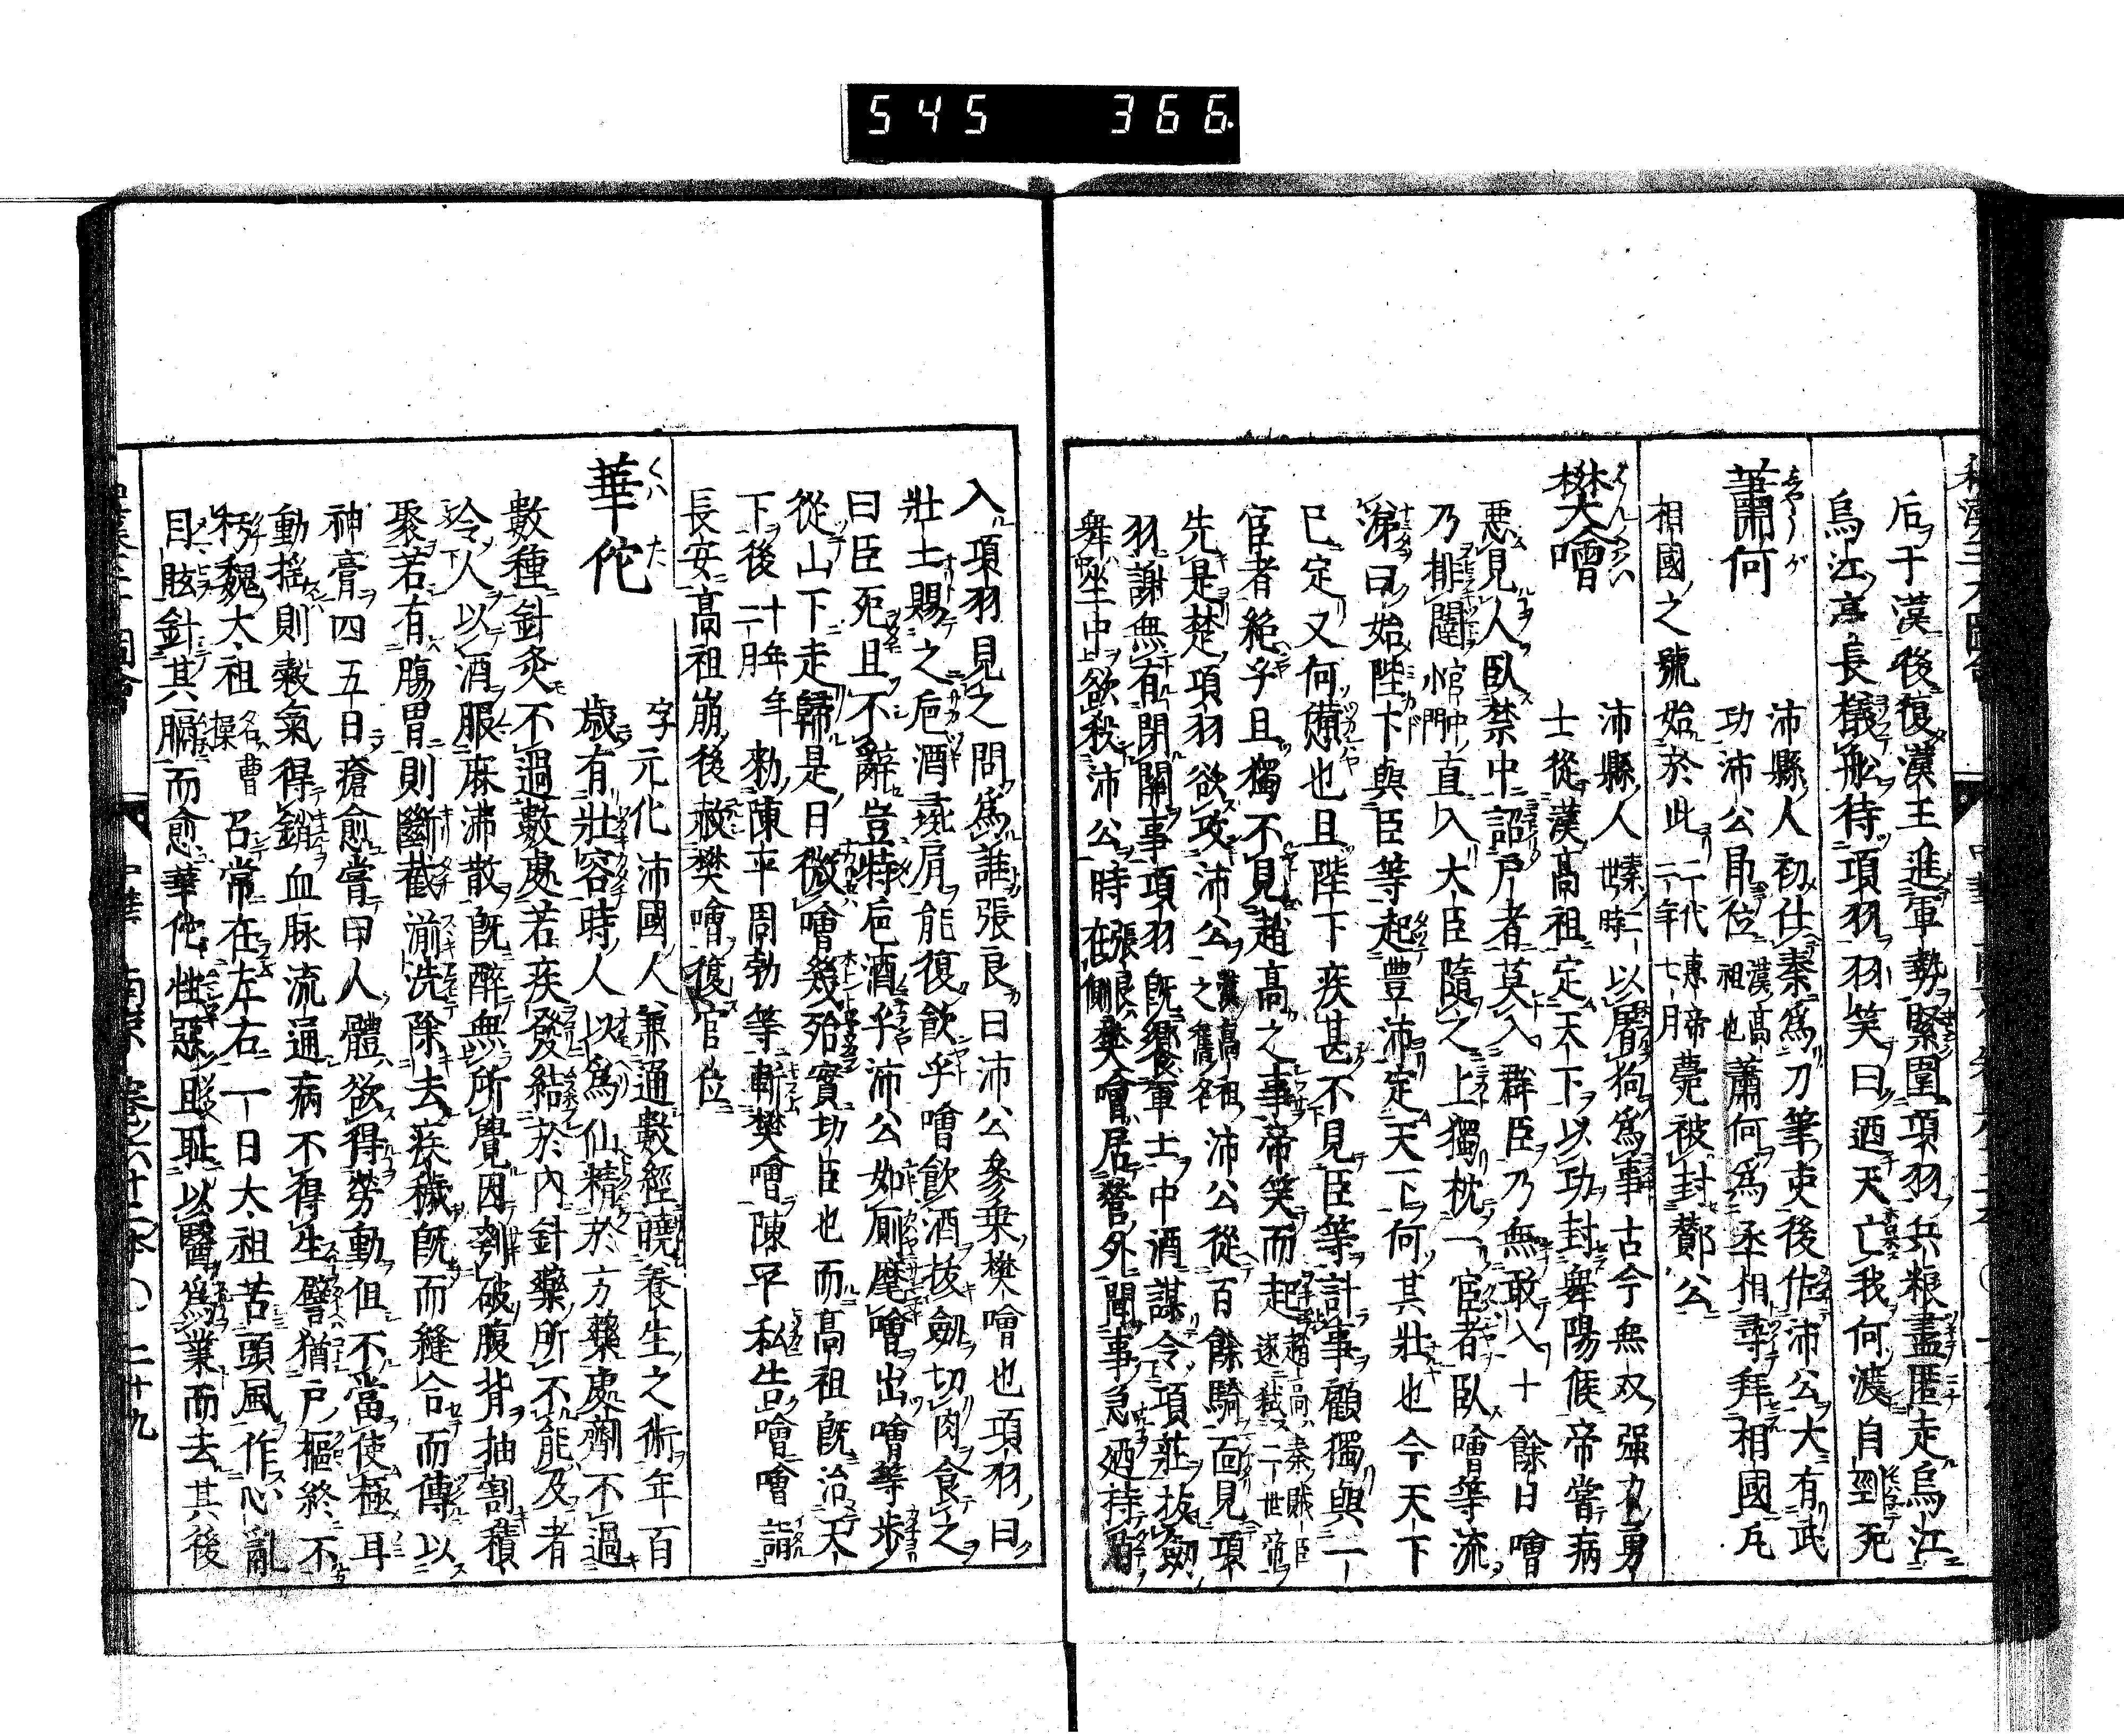 545 366
后于漢後復漢王進軍勢緊圍項羽兵粮盡匿走烏江
烏江亭長檥舩待項羽羽笑曰迺天亡我何渡自剄死
蕭何
沛縣人初仕秦爲刀筆吏後佐沛公大有武
功沛公即位漢高祖也蕭何爲丞相尋拜相國凡
相國之號始於此二代惠帝二年七月薨被封酇公
樊噲
沛縣人秦二世時以屠狗爲事古今無双强力勇
士從漢高祖定天下以功封舞陽侯帝嘗病
悪見人臥禁中詔戸者莫入群臣乃無敢入十餘日噲
乃排闥宮中小門直入大臣隨之上獨枕一宦者臥噲等流
涕曰始陛下與臣等起豊沛定天下何其壯也今天下
已定又何憊也且陛下疾甚不見臣等計事顧獨與一
宦者絶乎且獨不見趙高之事帝笑而起趙高秦賊臣遂弑二世帝
先是楚項羽欲攻沛公漢高祖之舊名沛公從百餘騎回見項
羽謝無有閉關事項羽既饗軍士中酒謀令項莊拔劔
舞坐中欲殺沛公時張良在側樊噲居營外聞事急廼持盾
入項羽見之問爲誰張良曰沛公參乗樊噲也項羽曰
壯士賜之巵酒彘肩能復飲乎噲飲酒拔劔切肉食之
曰臣死且不辭豈特巵酒乎沛公如厠麾噲出噲等歩
從山下走歸是日微噲幾殆實功臣也而高祖既治天
下後十二年二月勅陳平周勃等斬樊噲陳平私告噲噲詣
長安高祖崩後赦樊噲復官位
華佗
字元化沛國人兼通數經曉養生之術年百
歳有壯容時人以爲仙精於方藥處劑不過
數種針灸不過數處若疾發結於内針藥所不能及者
令人以酒服麻沸散既醉無所覺因刳破腹背抽割積
聚若有膓胃則斷截湔洗除去疾穢既而縫合而傳以
神膏四五日瘡愈嘗曰人體欲得勞動但不當使極耳
動揺則穀氣得銷血脉流通病不得生譬猶戸樞終不
朽魏太祖名曹操召常在左右一日太祖苦頭風作心亂
目眩針其膈而愈華佗性惡且耻以醫爲業而去其後